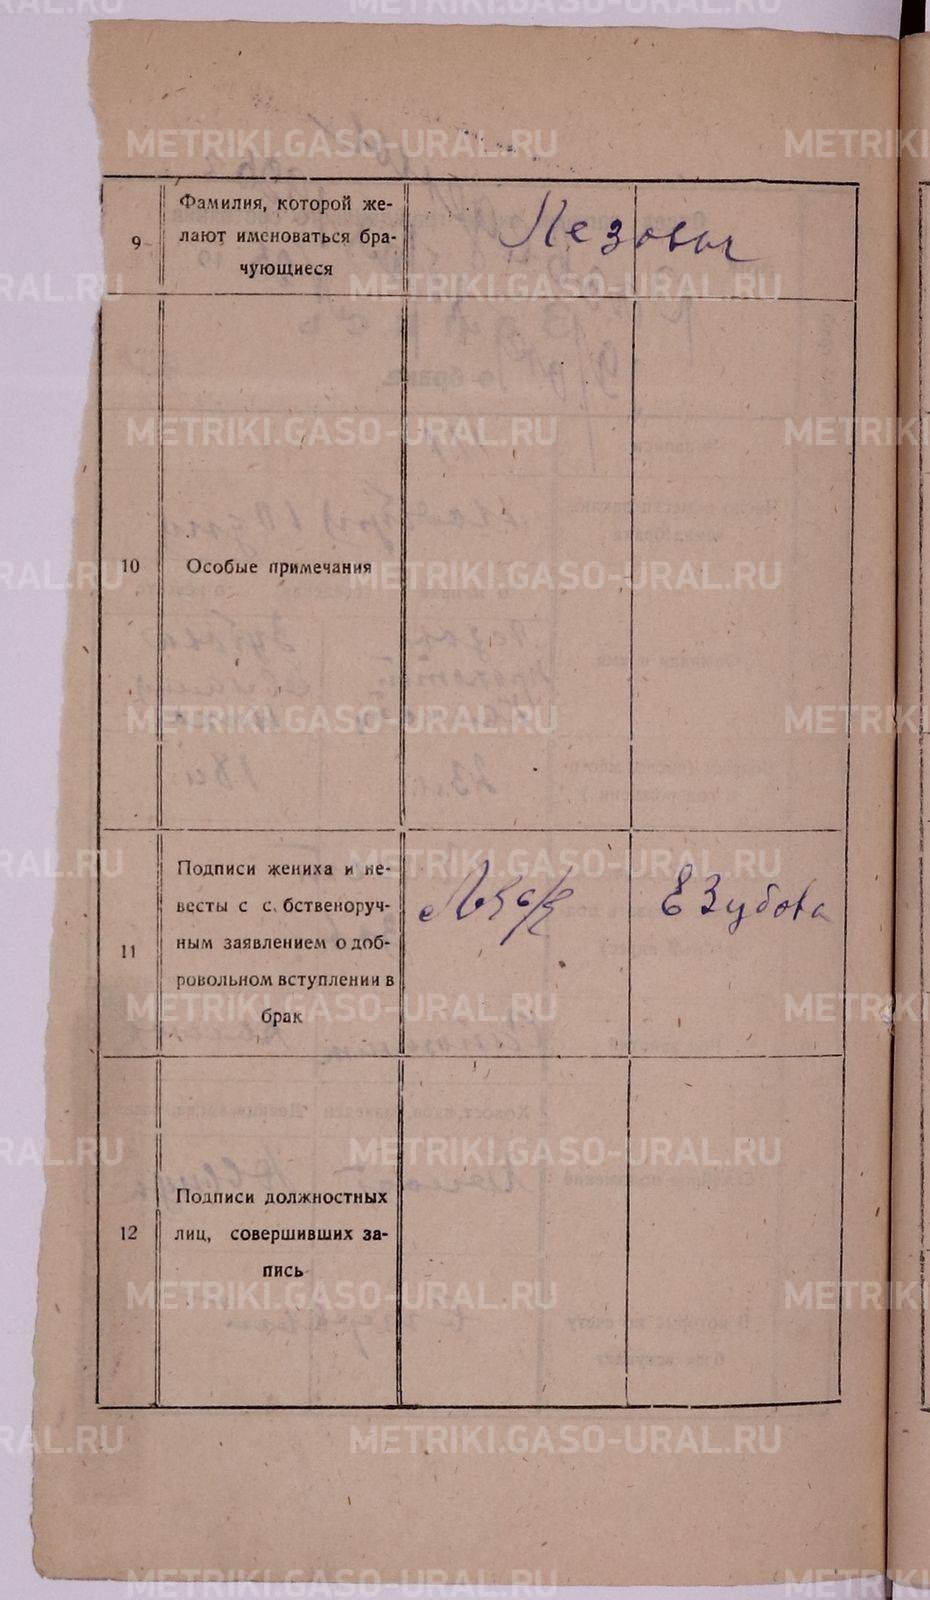 METRIKI.GASO-URAL.RU
9
Фамилия, которой же-
лают именоваться бра-
чующиеся
10
Особые примечания
11
Подписи жениха и не-
весты с с. бственоруч-
ным заявлением о доб-
ровольном вступлении в
брак
Е Зубова
12
Подписи должностных
лиц, совершивших за-
пись